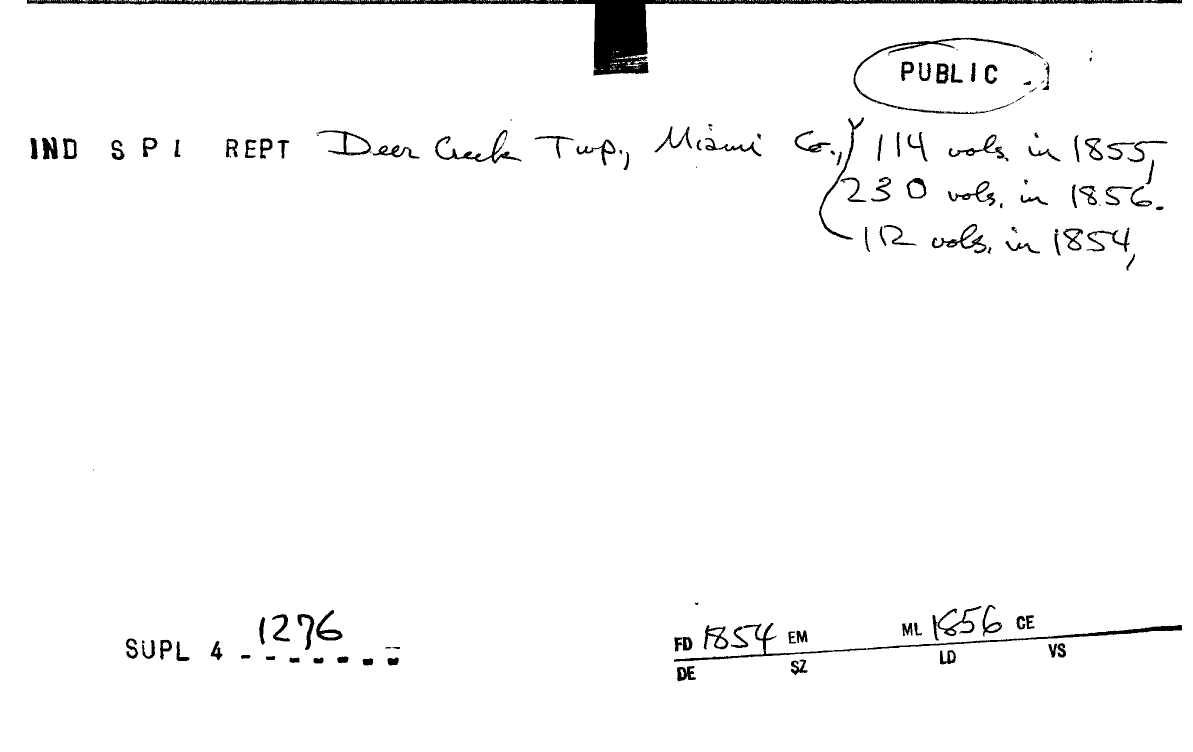 PUBLIC
IND S P I REPT Deer Creek Twp., Miami Co., 114 vols. in 1855,
230 vols. in 1856.
112 vols. in 1854,
SUPL 4 1276
FD 1854 EM ML 1856 CE
DE SZ LD VS